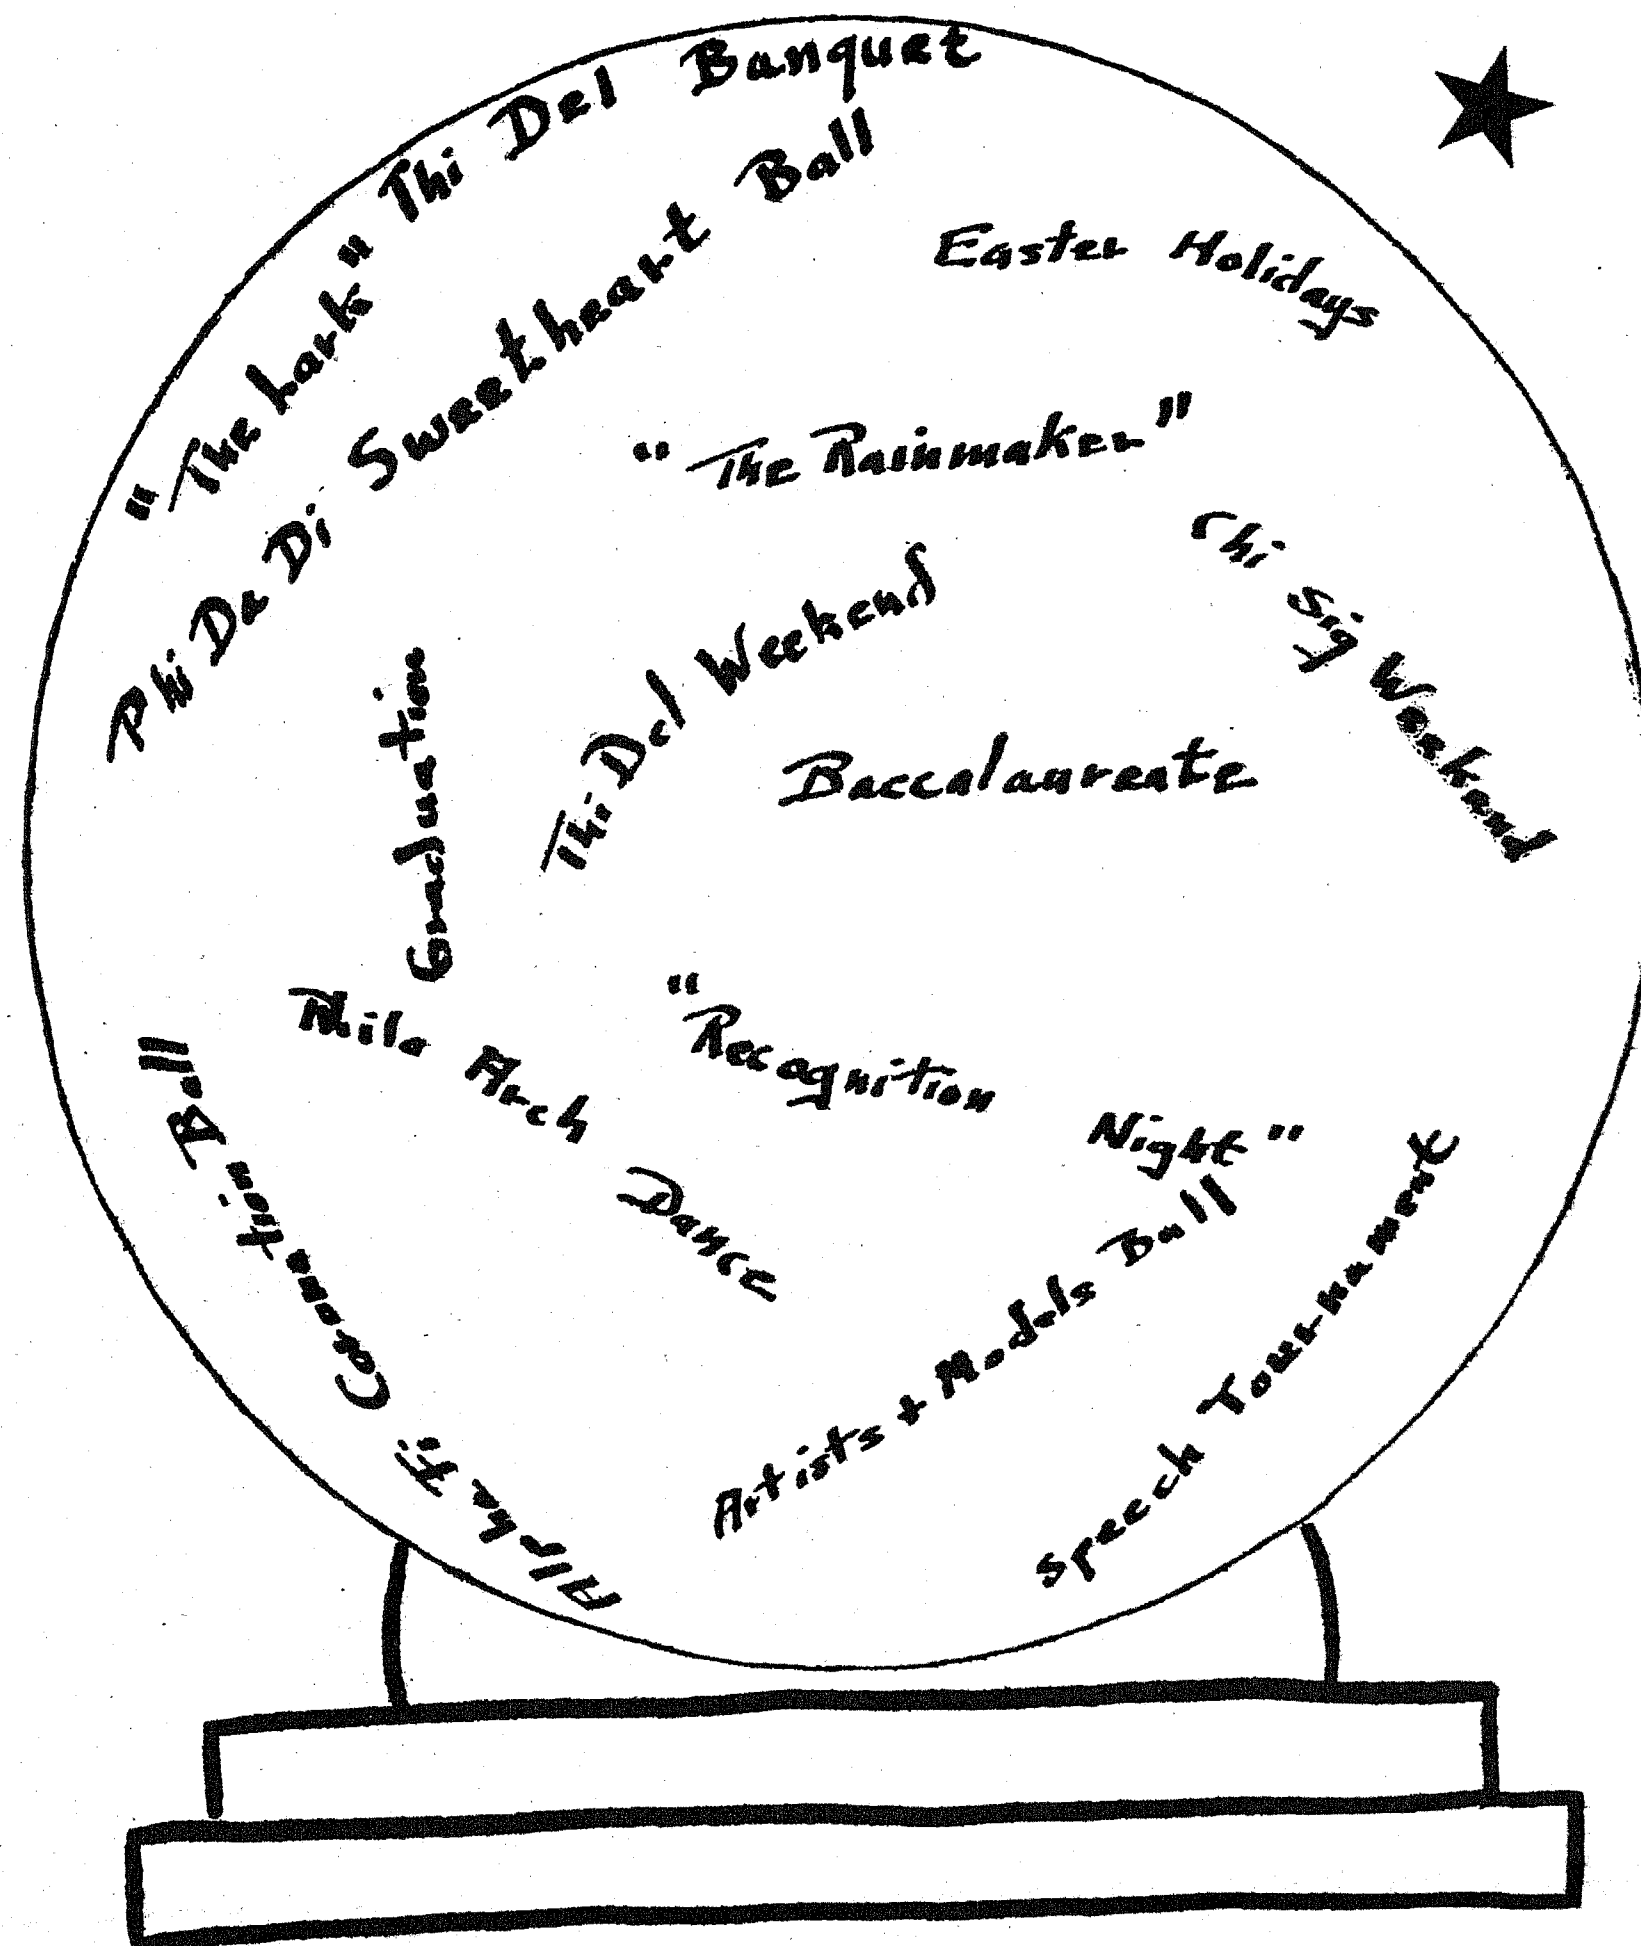 "The Lark"
Thi Del Banquet
Phi Da Di Sweetheart Ball
Easter Holidays
"The Rainmaker"
Chi Sig Weekend
Thi Del Weekend
Graduation
Baccalaureate
Phila Arch Dance
"Recognition Night"
Alpha Fi Coronation Ball
Artists + Models Ball
Speech Tournament